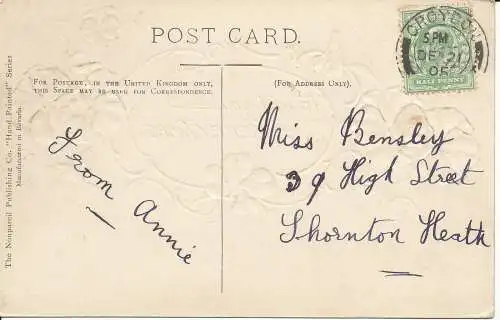 POST CARD.
CROYDON
5 PM
DE 21
05
HALFPENNY
FOR POSTAGE, IN THE UNITED KINGDOM ONLY,
THIS SPACE MAY BE USED FOR CORRESPONDENCE.
(FOR ADDRESS ONLY).
The Nonpareil Publishing Co. "Hand Painted" Series
Manufactured in Bavaria.
From Annie
Miss Bensley
39 High Street
Thornton Heath